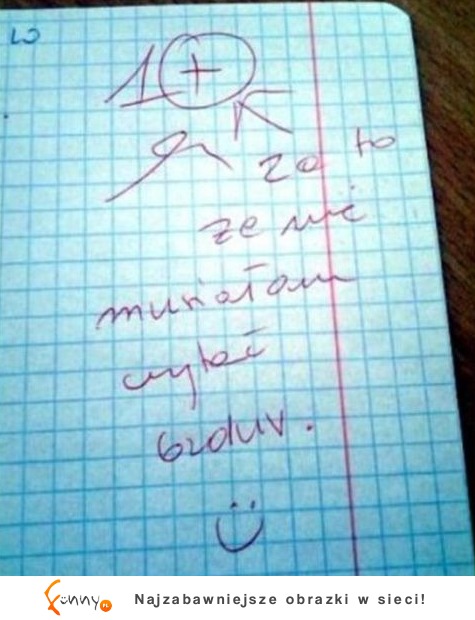 1+
za to
że nie
musiałam
czytać
bzdur.
funny.PL Najzabawniejsze obrazki w sieci!